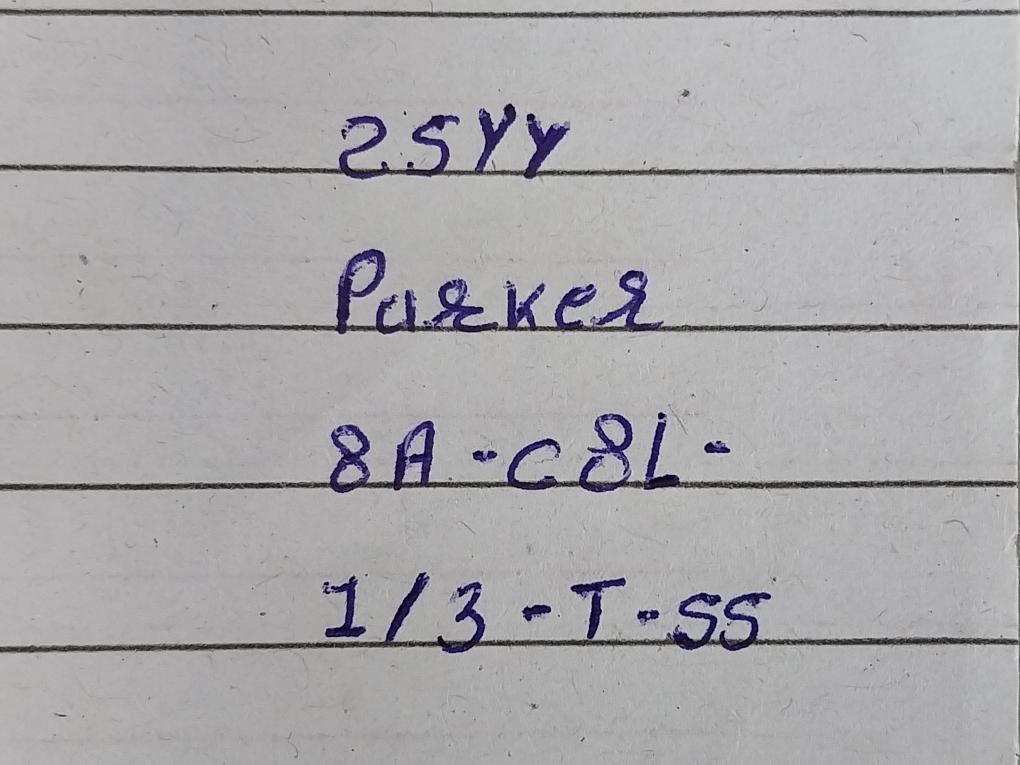 25YY
Parker
8A-C8L-
1/3-T-SS